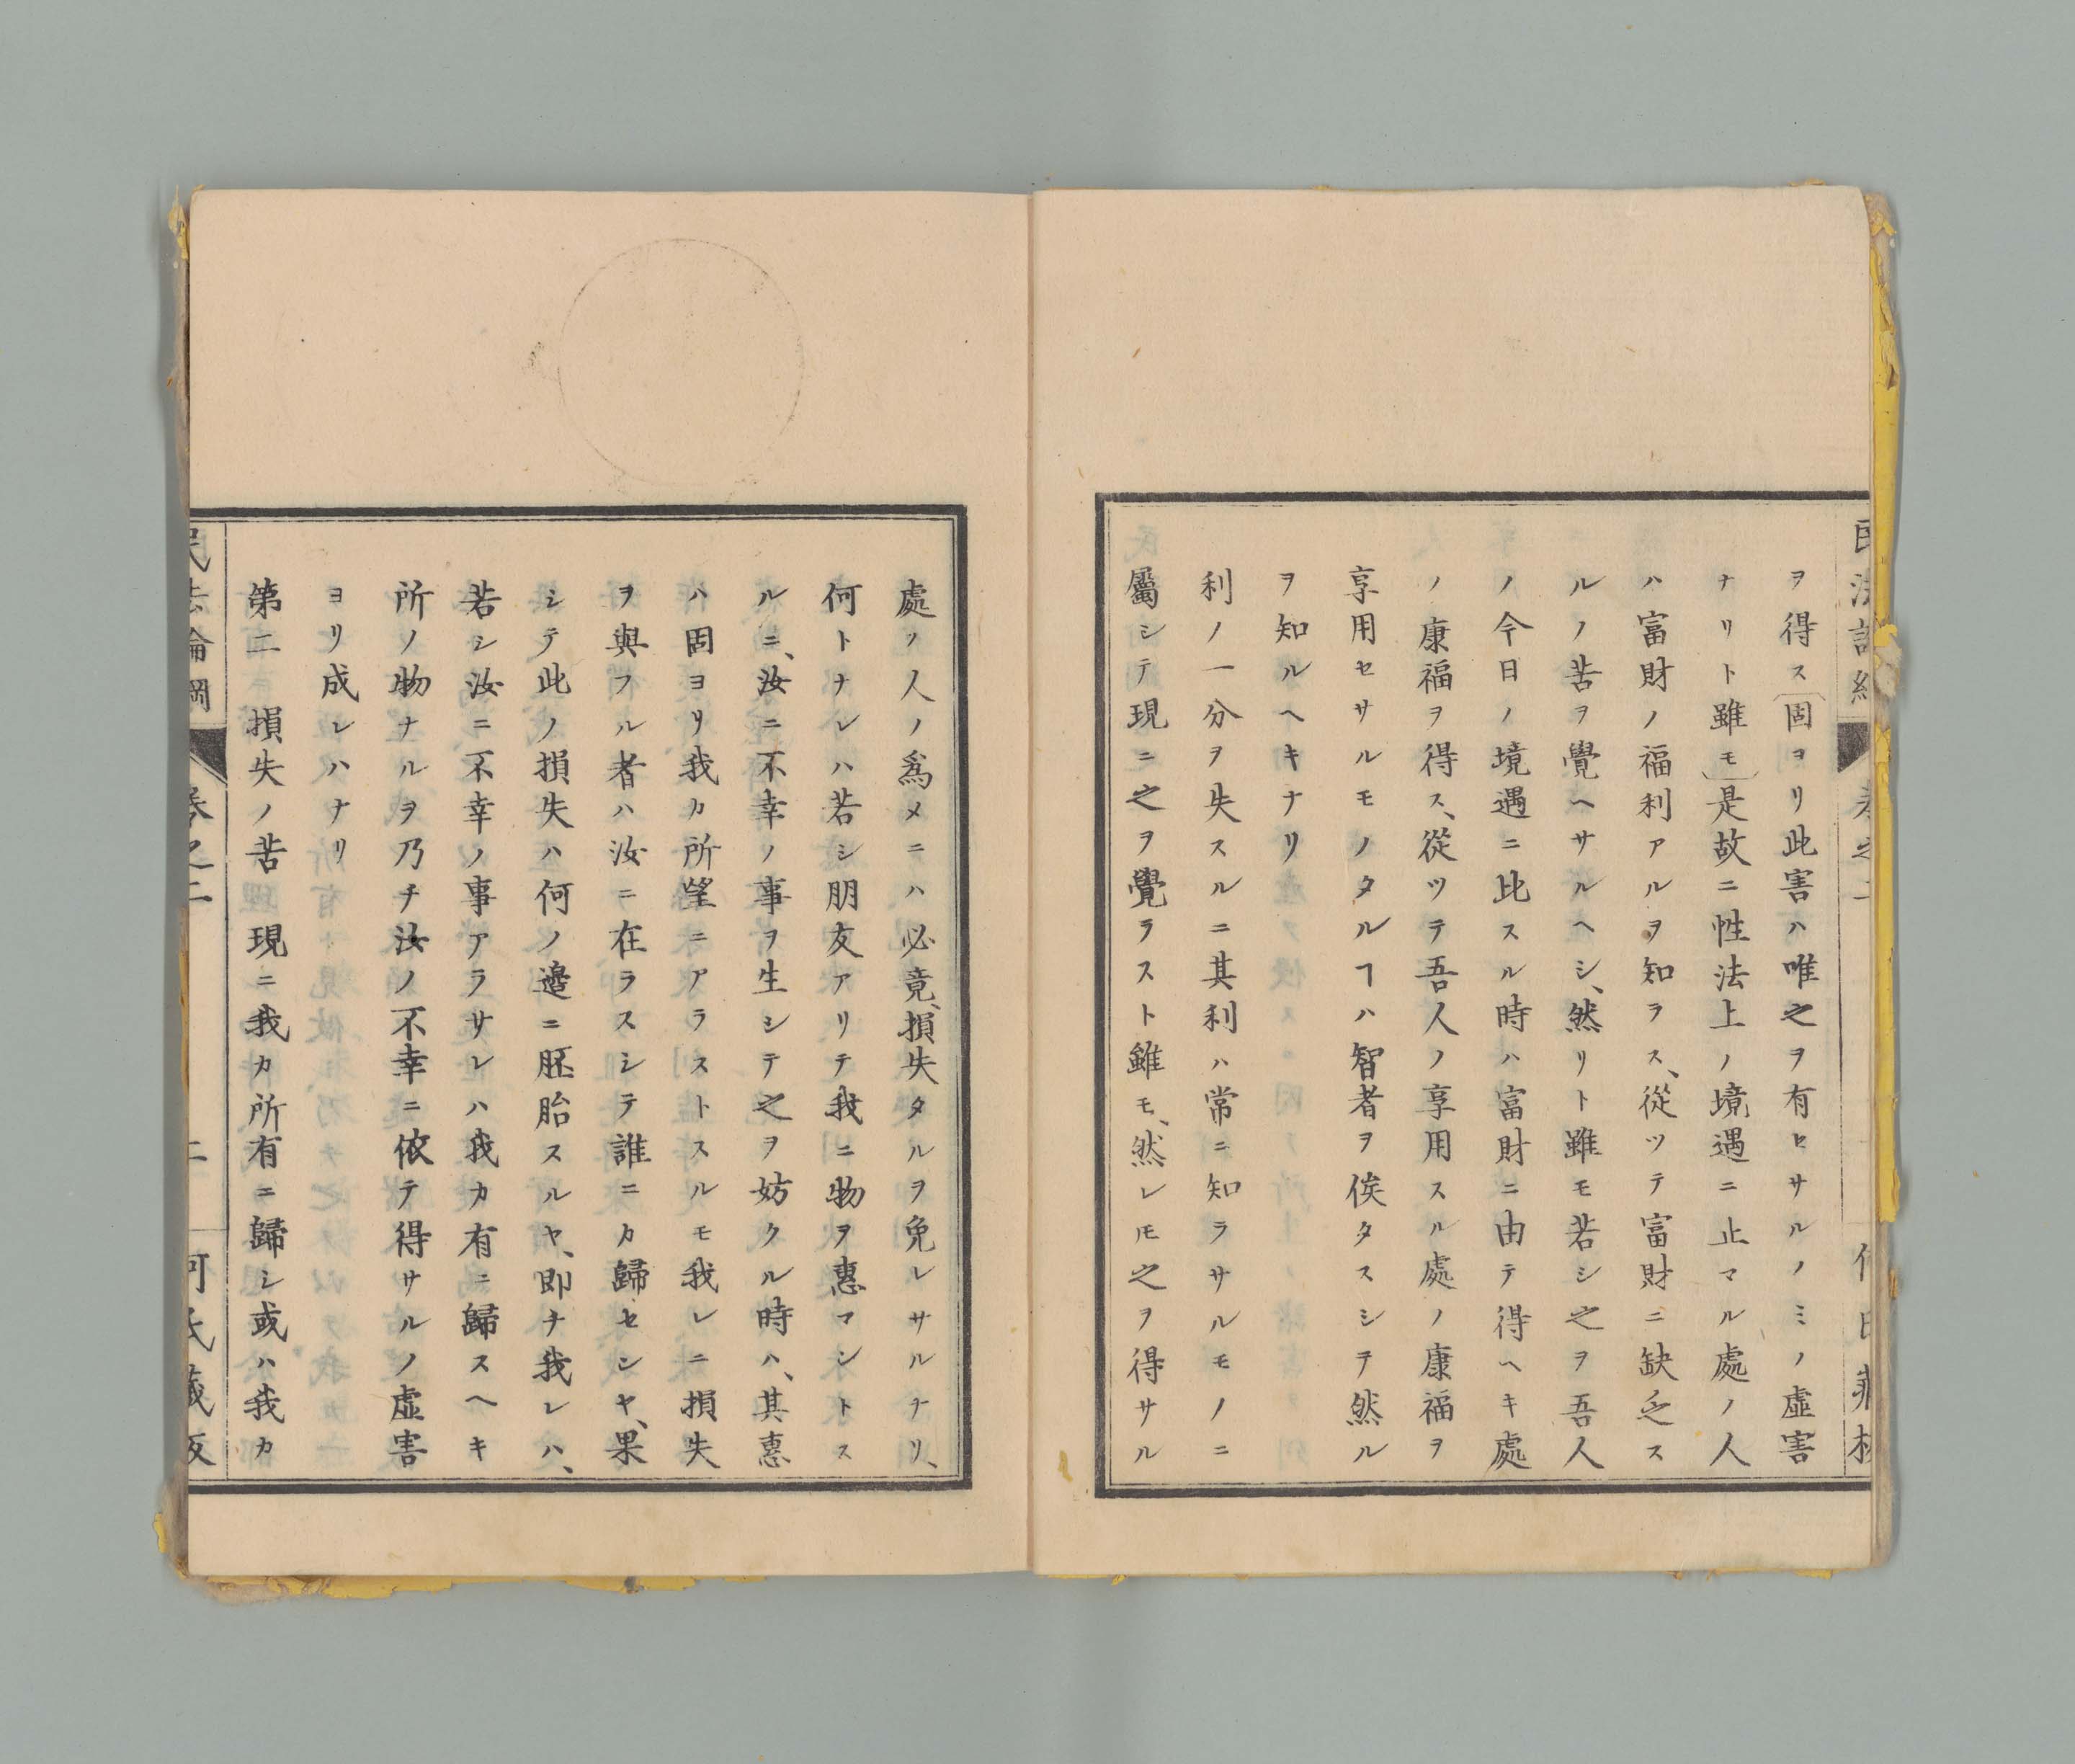 ヲ得ス固ヨリ此害ハ唯之ヲ有セサルノミノ虛害
ナリト雖モ是故ニ性法上ノ境遇ニ止マル處ノ人
ハ富財ノ福利アルヲ知ラス、從ツテ富財ニ缺乏ス
ルノ苦ヲ覺ヘサルヘシ、然リト雖モ若シ之ヲ吾人
ノ今日ノ境遇ニ比スル時ハ富財ニ由テ得ヘキ處
ノ康福ヲ得ス、從ツテ吾人ノ享用スル處ノ康福ヲ
享用セサルモノタルヿハ智者ヲ俟タスシテ然ル
ヲ知ルヘキナリ
利ノ一分ヲ失スルニ其利ハ常ニ知ラサルモノニ
屬シテ現ニ之ヲ覺ラスト雖モ、然レ𪜈之ヲ得サル
處ノ人ノ爲メニハ必竟、損失タルヲ免レサルナリ、
何トナレハ若シ朋友アリテ我ニ物ヲ惠マントス
ルニ、汝ニ不幸ノ事ヲ生シテ之ヲ妨クル時ハ、其惠
ハ固ヨリ我カ所望ニアラストスルモ我レニ損失
ヲ與フル者ハ汝ニ在ラスシテ誰ニカ歸セシヤ、果
シテ此ノ損失ハ何ノ邉ニ胚胎スルヤ、即チ我レハ、
若シ汝ニ不幸ノ事アラサレハ我カ有ニ歸スヘキ
所ノ物ナルヲ乃チ汝ノ不幸ニ依テ得サルノ虛害
ヨリ成レハナリ
第二 損失ノ苦 現ニ我カ所有ニ歸シ或ハ我カ
民法論綱 卷之二 二 何氏藏版